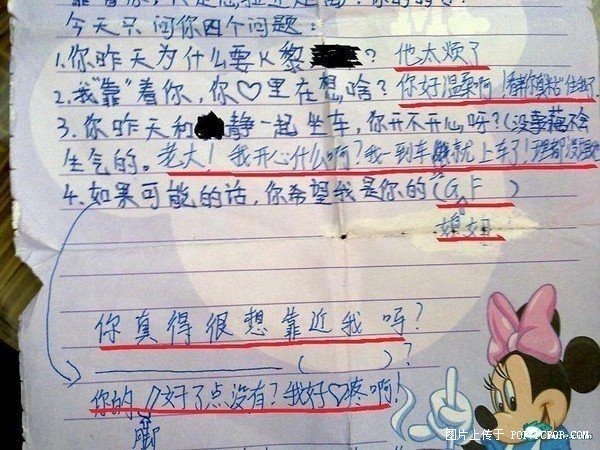 今天只问你四个问题:
1.你昨天为什么要K黎? 他太烦了
2.我"靠"着你,你♡里在想啥? 你好温柔啊!
3.你昨天和静一起坐车,你开不开心呀?(没事,我不会
生气的。老大!我开心什么啊?我一到车就上车了!
4.如果可能的话,你希望我是你的(G F)
媳妇
你真得很想靠近我呀?
( )?
你的 好了点没有?我好♡疼啊!
脚
图片上传于 POPTCPOP.COM